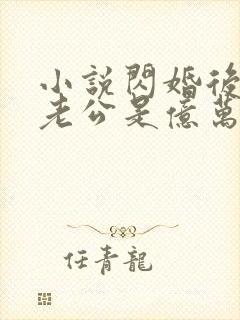 小說閃婚後
老公是億萬
任青龍